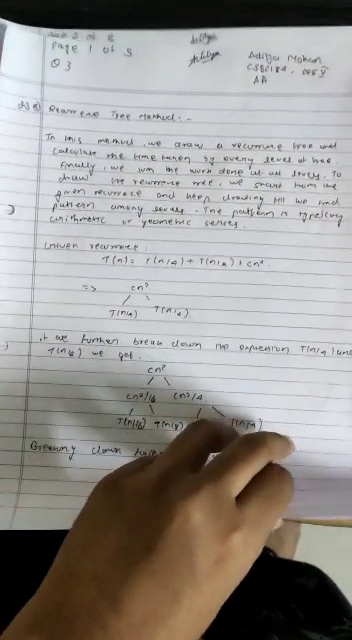 Page 1 of 5
Q3
Aditya Mohan
AA
Recurrence Tree Method:-
In this method, we draw a recurrence tree and
calculate the time taken by every level of tree.
Finally, we sum the work done at all levels. To
draw the recurrence tree, we start from the
given recurrence and keep drawing till we find
pattern among levels. The pattern is typically
arithmetic or geometric series.
Given recurrence:
T(n) = T(n/4) + T(n/2) + cn²
=> cn²
T(n/4) T(n/2)
If we further break down the expression T(n/4) and
T(n/2) we get.
cn²
cn²/16 cn²/4
T(n/16) T(n/8) T(n/4)
Breaking down